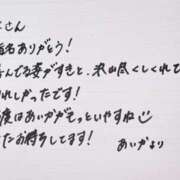 さん
指名ありがとう!
んでる姿がすきと、沢山尽くしてくれて
れしかったです!
度はあいかがもっといやすね☺
たお待ちしてます!
あいかより